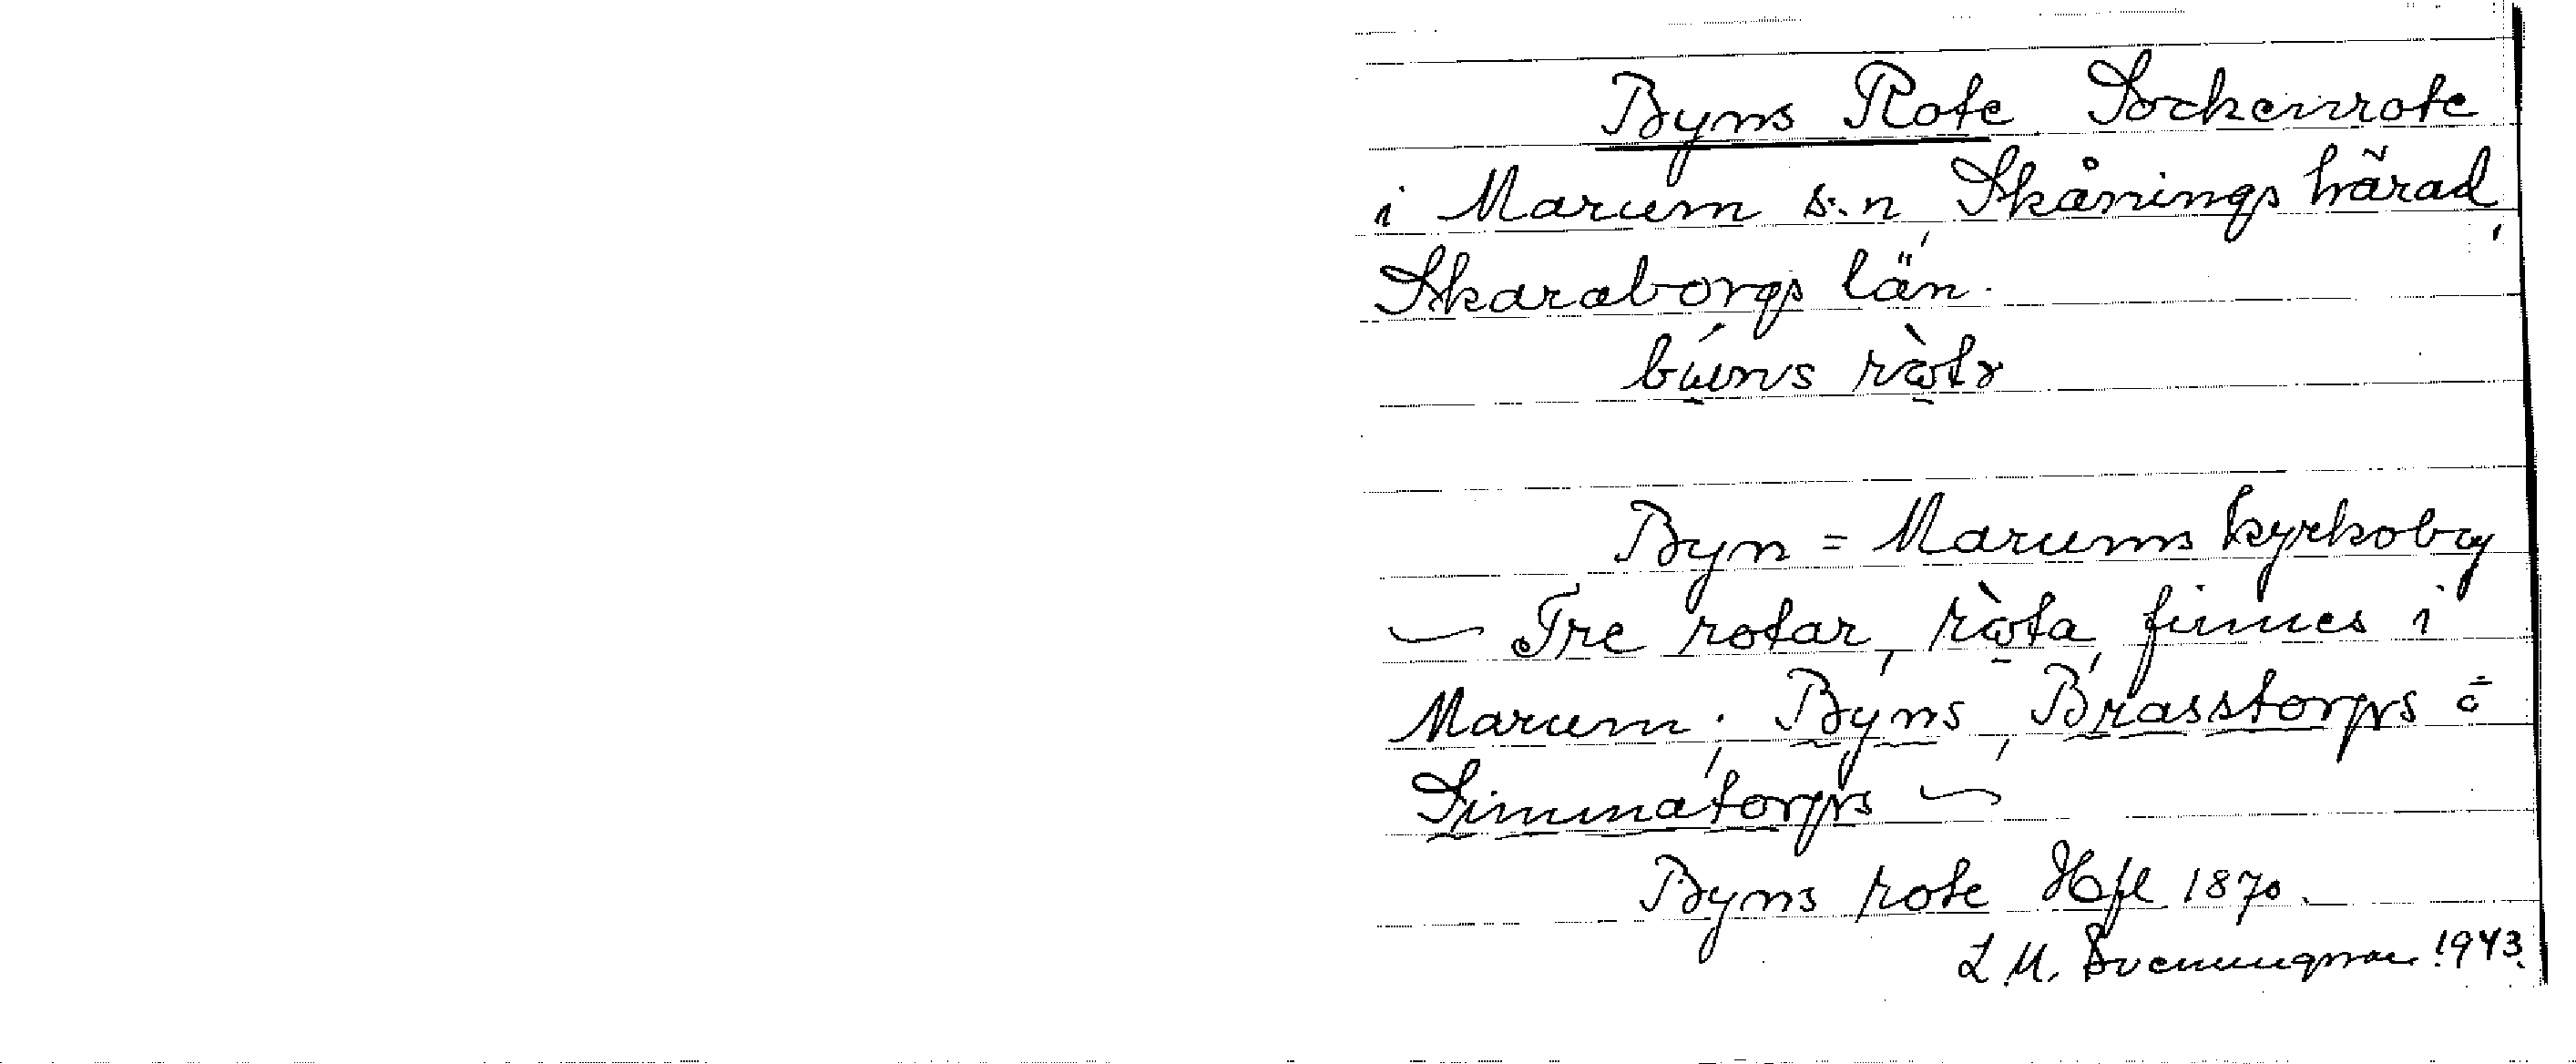 Byns Rote Sockenrote
i Marum s.n, Skånings härad,
Skaraborgs län.
Byn = Marums kyrkoby
— Tre rotar, finnes i
Marum; Byns, Brasstorps o
Simmatorps —
Byns rote Hfl 1870.
L.M. Svenungsson 1943.